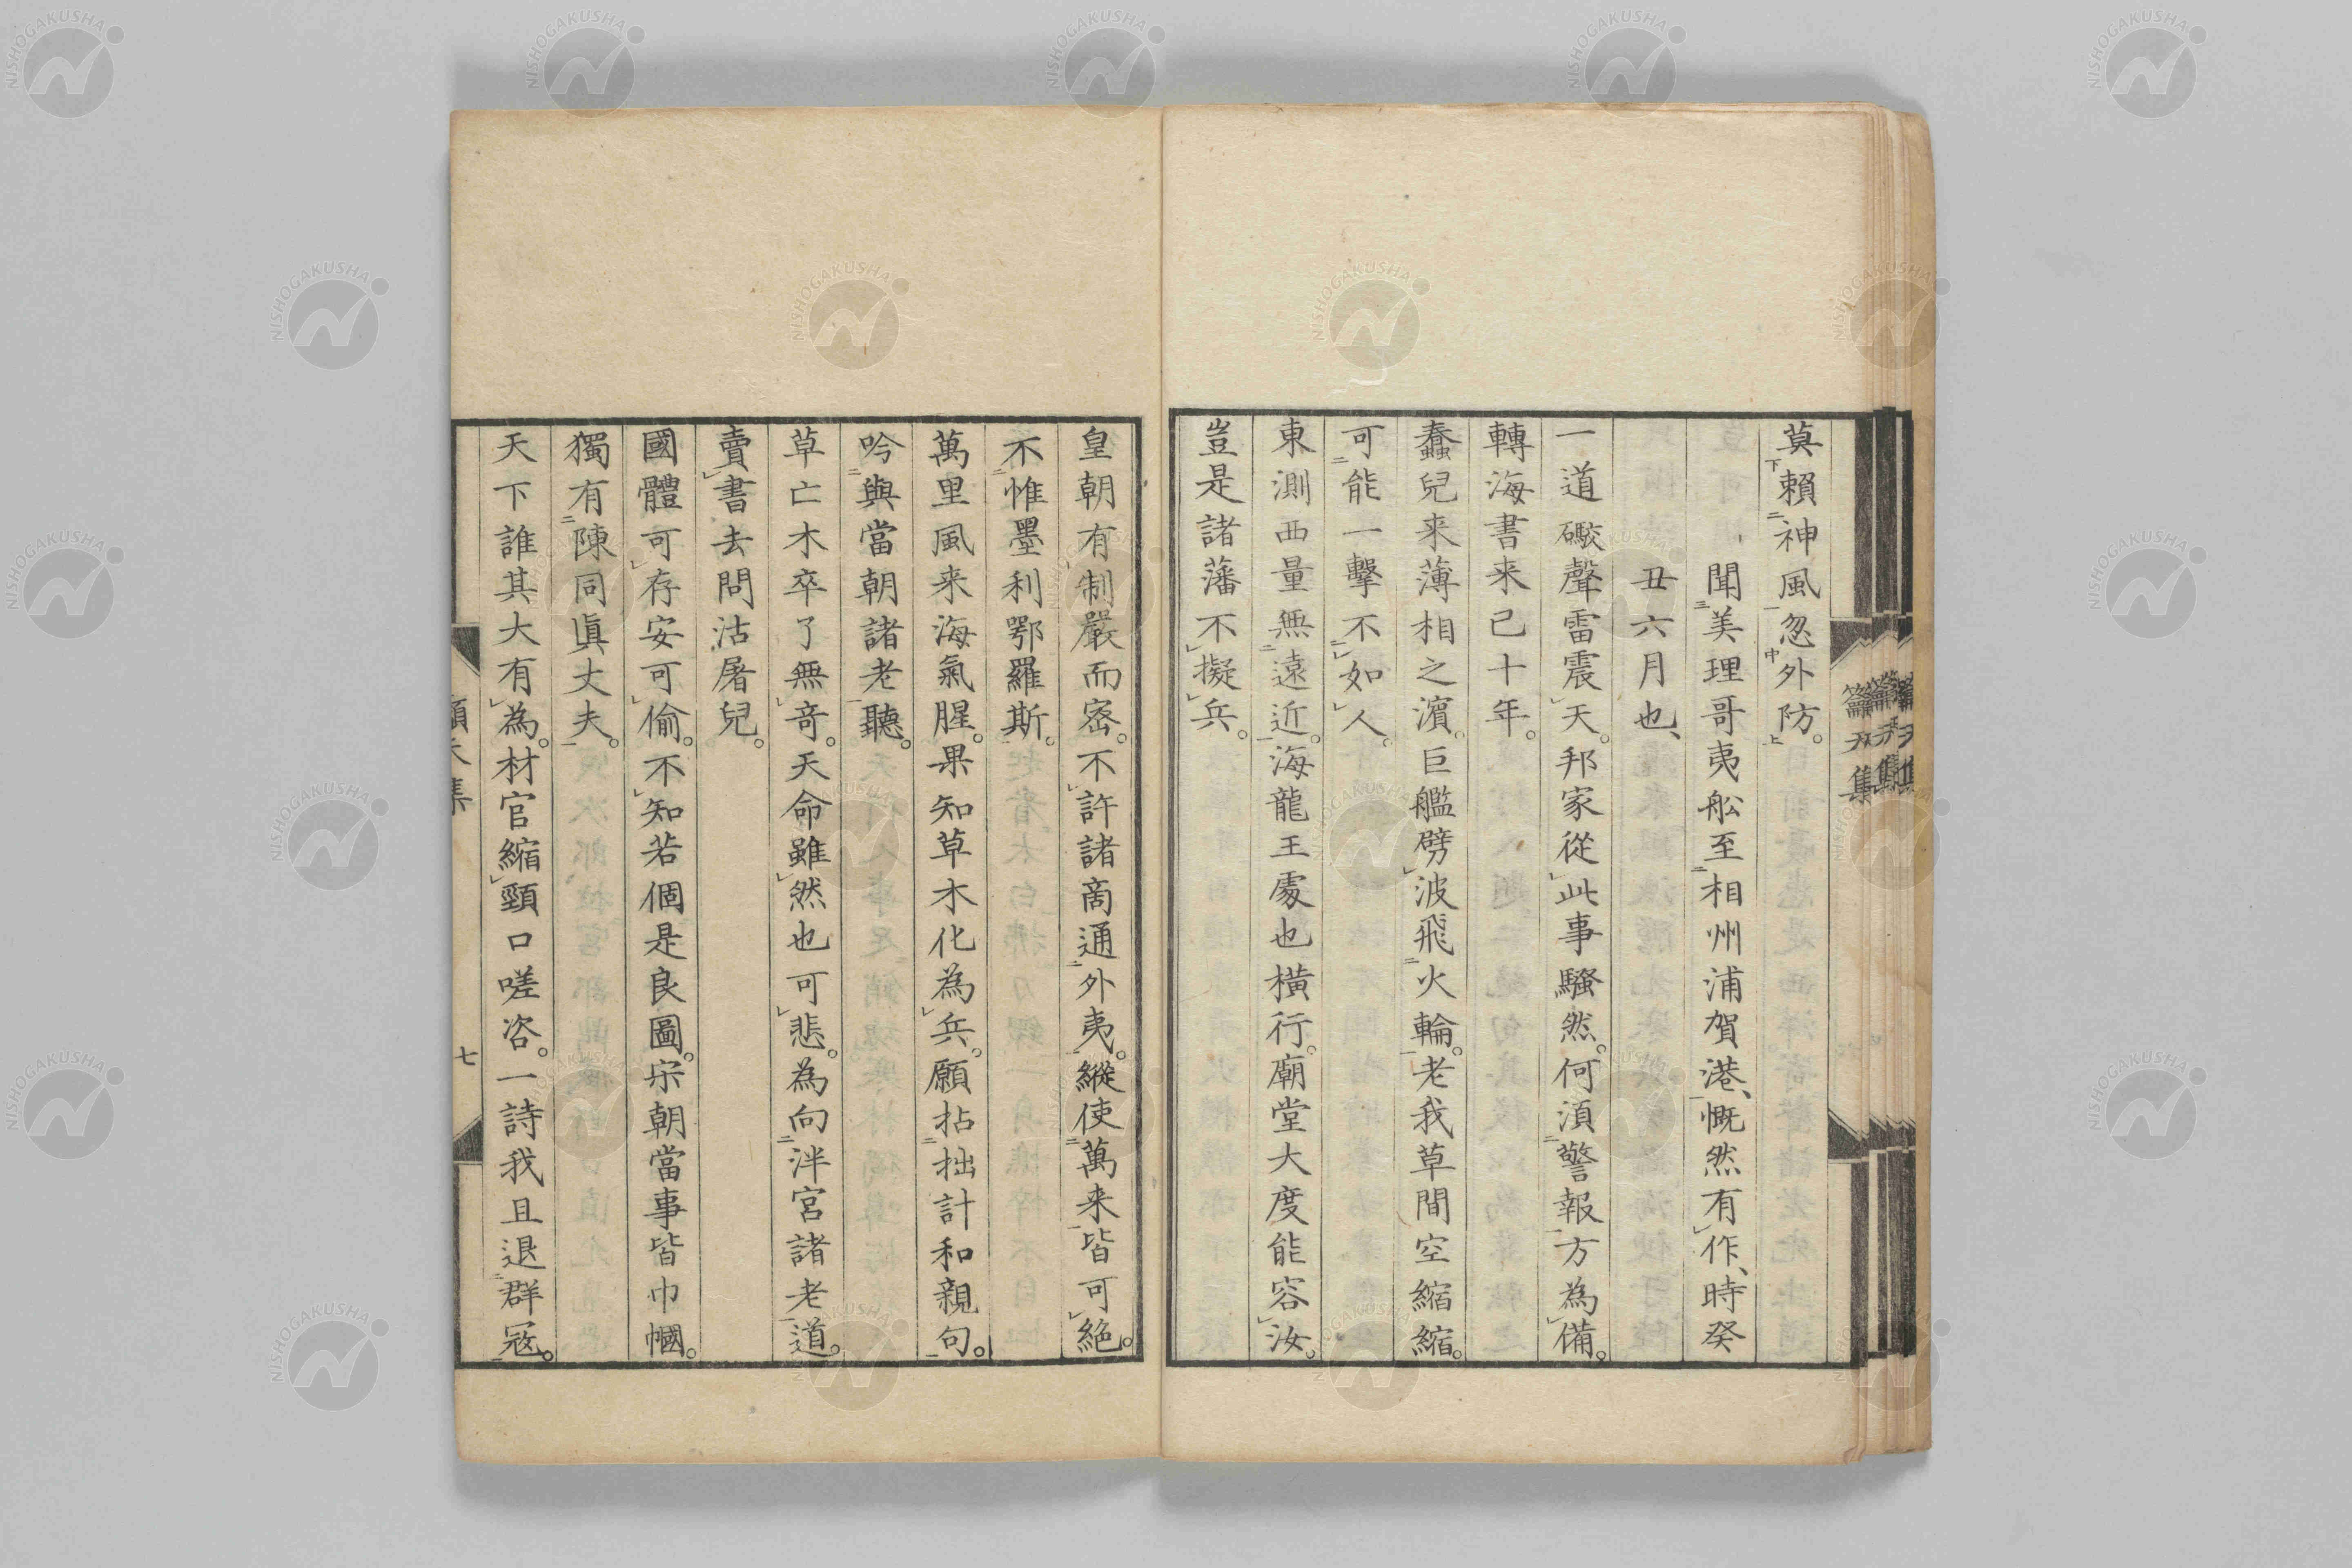 莫賴神風忽外防。
聞美理哥夷舩至相州浦賀港、慨然有作、時癸
丑六月也、
一道礮聲雷震天。邦家從此事騷然。何須警報方為備。
轉海書来已十年。
蠢兒来薄相之濱。巨艦劈波飛火輪。老我草間空縮縮。
可能一擊不如人。
東測西量無遠近。海龍王處也橫行。廟堂大度能容汝。
豈是諸藩不擬兵。
皇朝有制嚴而宻。不許諸商通外夷。縱使萬来皆可絕。
不惟墨利鄂羅斯。
萬里風来海氣腥。果知草木化為兵。願拈拙計和親句。
吟與當朝諸老聽。
草亡木卒了無竒。天命雖然也可悲。為向泮宮諸老道。
賣書去問沽屠兒。
國體可存安可偷。不知若個是良圖。宋朝當事皆巾幗。
獨有陳同眞丈夫。
天下誰其大有為。材官縮頸口嗟咨。一詩我且退群冦。
七
NISHOGAKUSHA